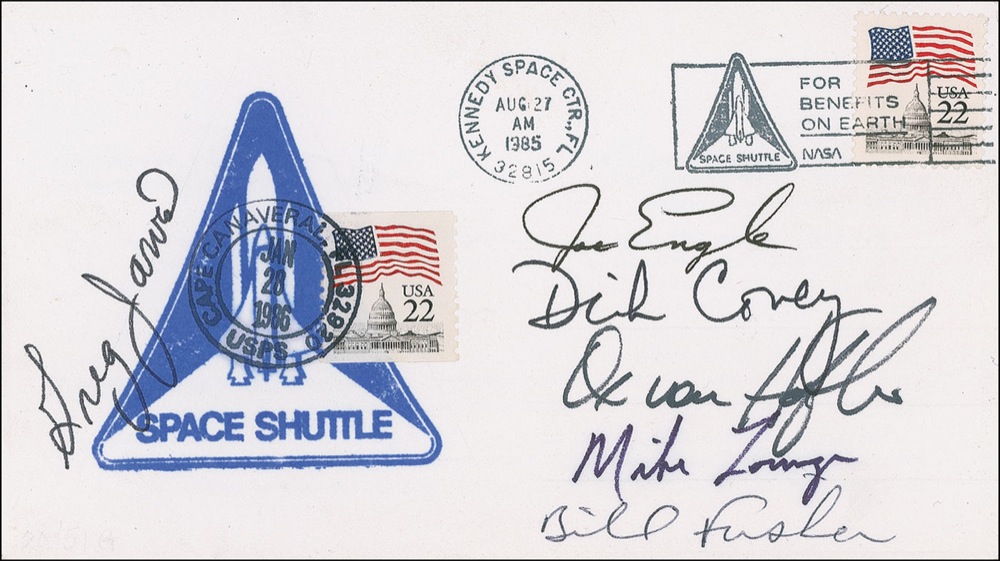 KENNEDY SPACE CTR., FL
AUG 27
AM
1985
32815
SPACE SHUTTLE
FOR
BENEFITS
ON EARTH
NASA
USA
22
CAPE CANAVERAL, FL 32920
JAN
28
1986
USPS
USA
22
SPACE SHUTTLE
Greg Jarvis
Joe Engle
Dick Covey
Ox van Hoften
Mike Lounge
Bill Fisher